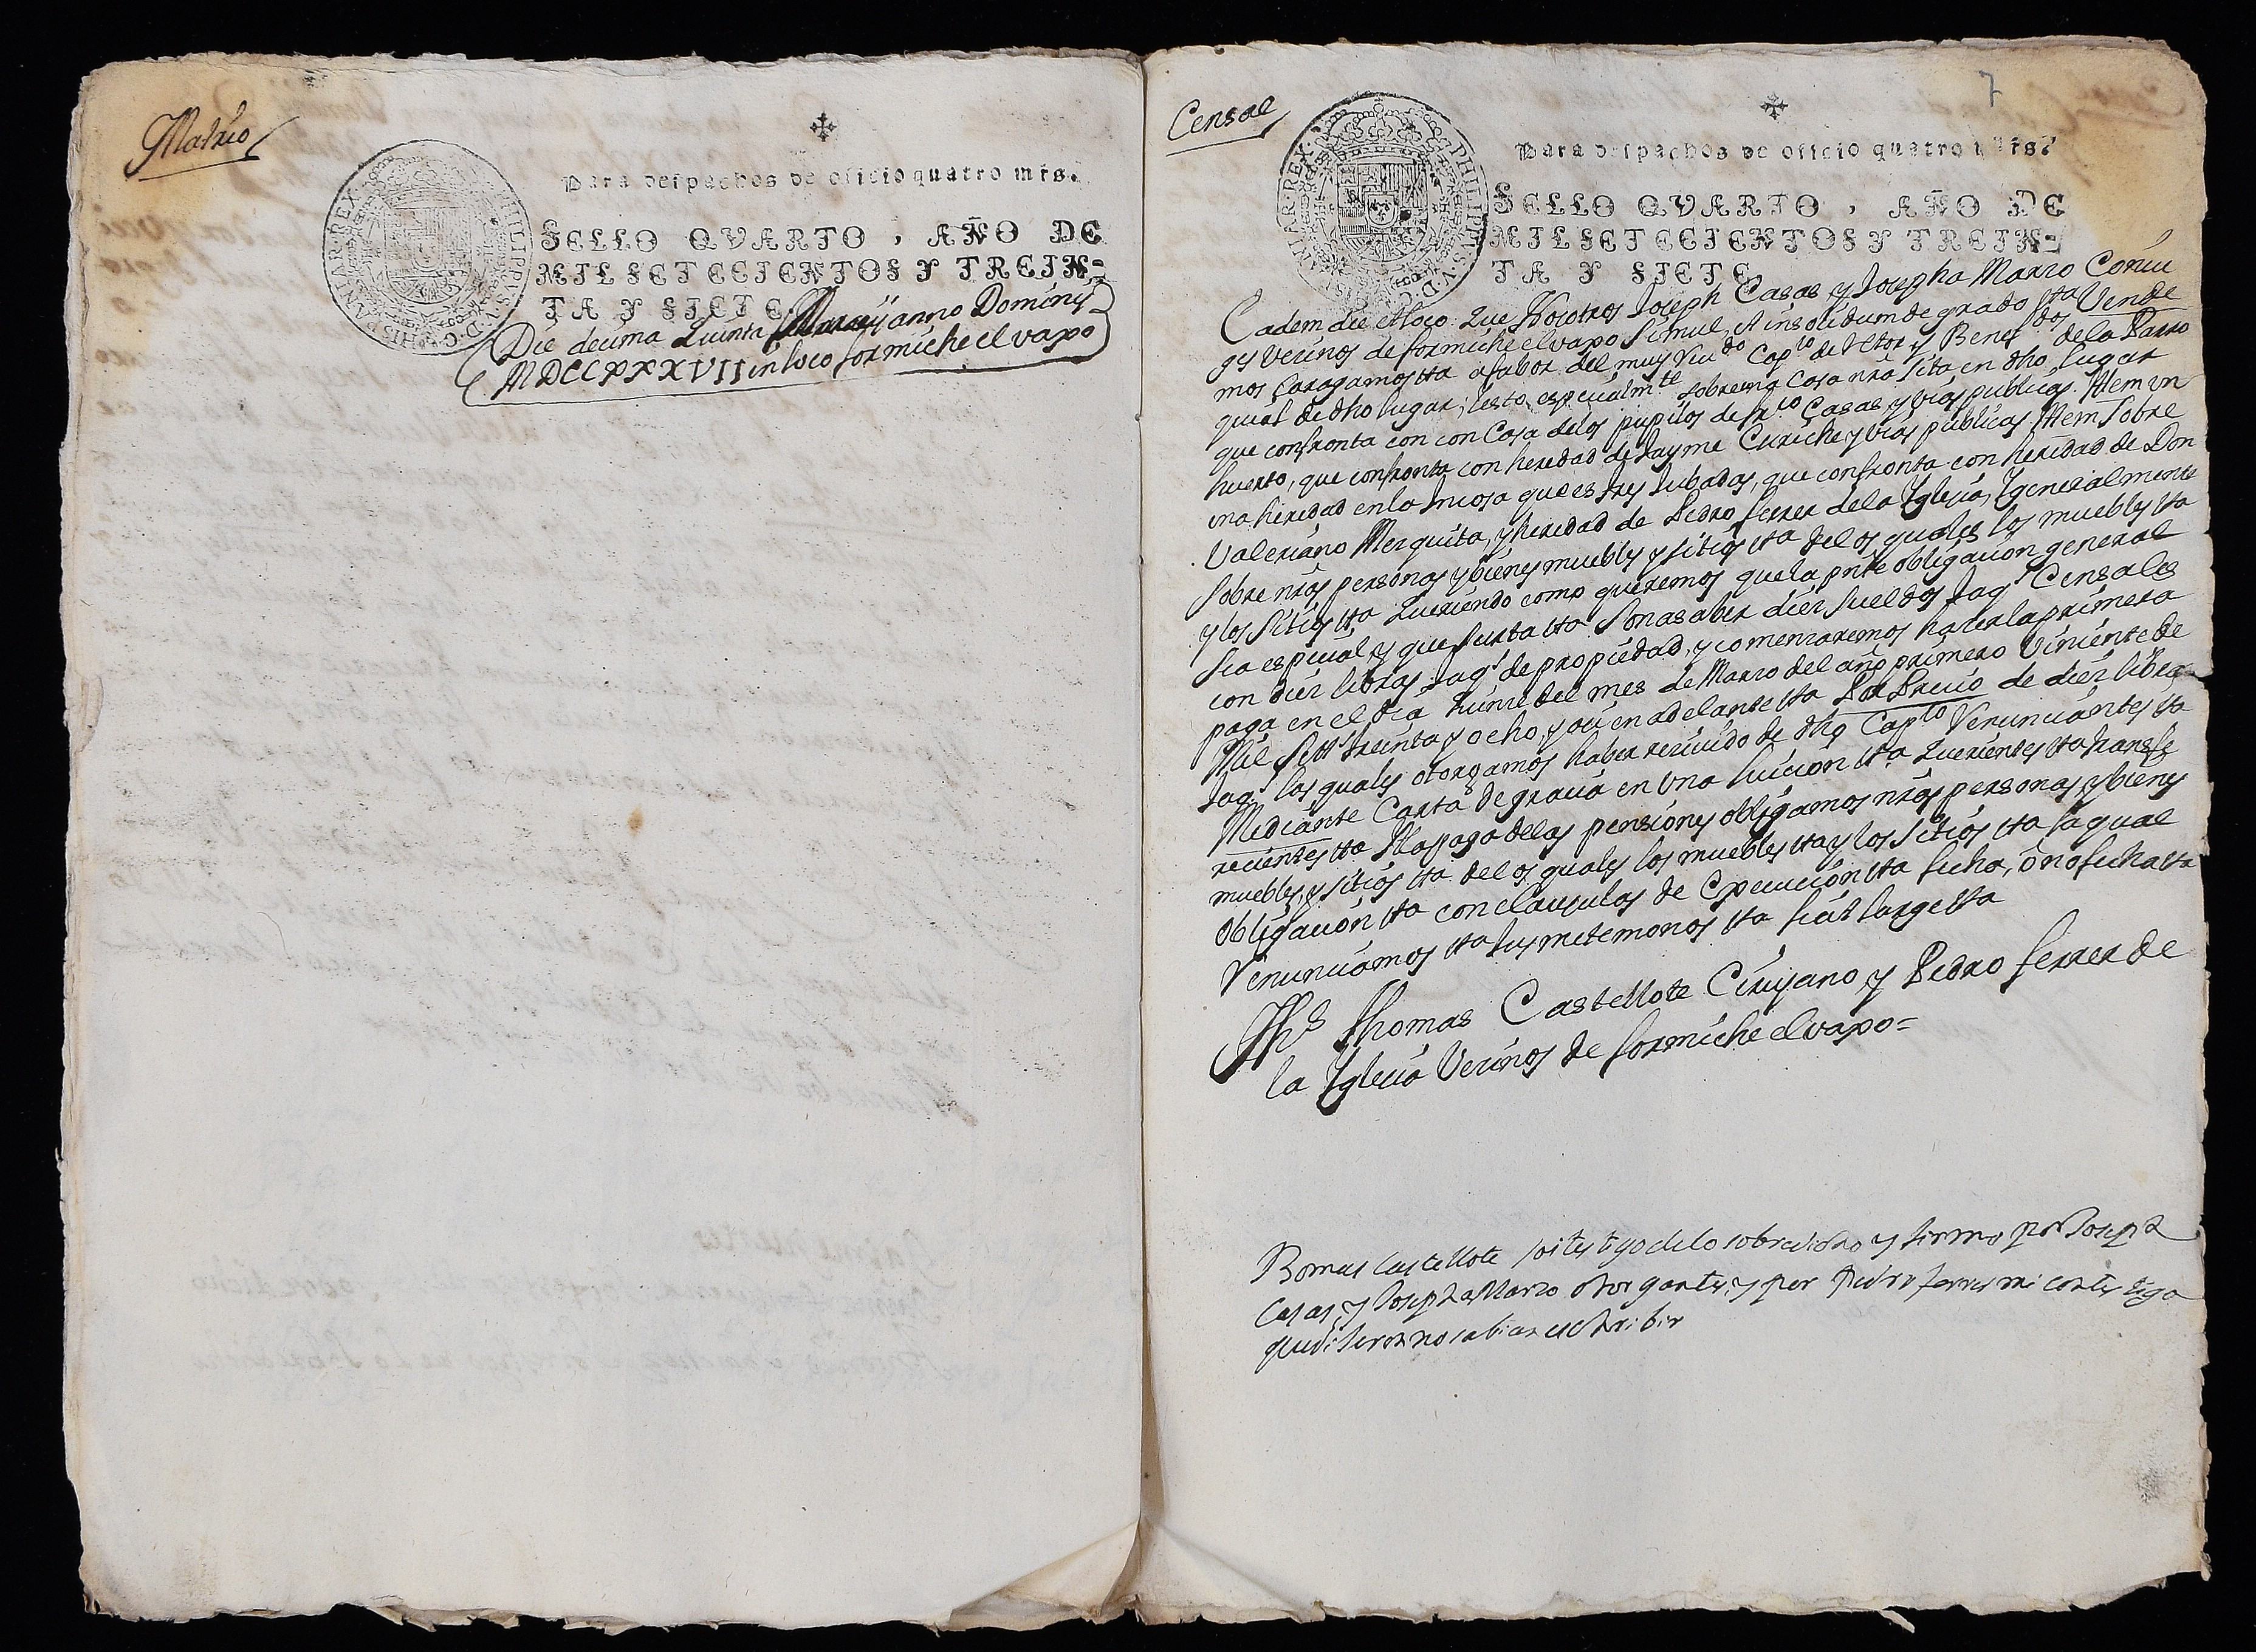 Matrio
Para despachos de oficio quatro mrs.
SELLO QVARTO, AÑO DE
MIL SETECIENTOS Y TREIN-
TA Y SIETE
PHILIPPVS V D G HISPANIAR REX
Die decima Quinta Marcij anno Dominy
MDCCXXXVII in loco formiche el vaxo
7
Censal
Para despachos de oficio quatro mrs.
PHILIPPVS V D G HISPANIAR REX
SELLO QVARTO, AÑO DE
MIL SETECIENTOS Y TREIN-
TA Y SIETE
Eadem die et loco: Que Nosotros Joseph Casas y Josepha Marzo Coniu
ges Vezinos de formiche el vaxo Simul, et insolidum de grado etta Vende
mos Caragamos etta a fabor del muy Rdo Capto de Rtor y Benefdos de la Parro
quial de dho lugar; es to especialmte sobre una Casa nra sita en dho lugar
que confronta con con Casa de los pupilos de Casas y vias publicas. Item un
huerto, que confronta con heredad de Jayme Curiche y vias publicas Item Sobre
una heredad en la que es tres Jubadas, que confronta con heredad de Don
Valeriano Mezquita, y heredad de Pedro ferrer de la Iglecia, Y generalmente
Sobre nras personas y bienes muebles y sitios etta de los quales los muebles etta
y los Sitios etta Queriendo como queremos que la pnte obligacion general
sea espicial y que surta etta Son a saber diez Sueldos Jaqs Censales
con diez libras Jaqs de propiedad, y comenzaremos hacer la primera
paga en el dia del mes de Marzo del año primero Viniente de
Mil Sets treinta y ocho, y asi en adelante etta Por Precio de diez libras
Jaqs las quales otorgamos haber recivido de dho Capto Renunciantes etta
Mediante Carta de gracia en una luicion etta Querientes etta transfe
recientes etta A la paga de las pensiones obligamos nras personas y bienes
muebles, y sitios etta de los quales los muebles etta y los Sitios etta la qual
obligacion etta con clausulas de Execucion etta fecha, ò no fecha etta
Renunciamos etta susmetemonos etta fiat large etta
Ths Thomas Castellote Cirujano y Pedro ferrer de
la Iglecia Vezinos de formiche el vaxo=
Tomas Castellote soi testigo de lo sobredicho y firmo por Joseph
Casas, y Josepha Marzo otorgantes, y por Pedro ferrer mi contestigo
que dijeron no sabian eschribir